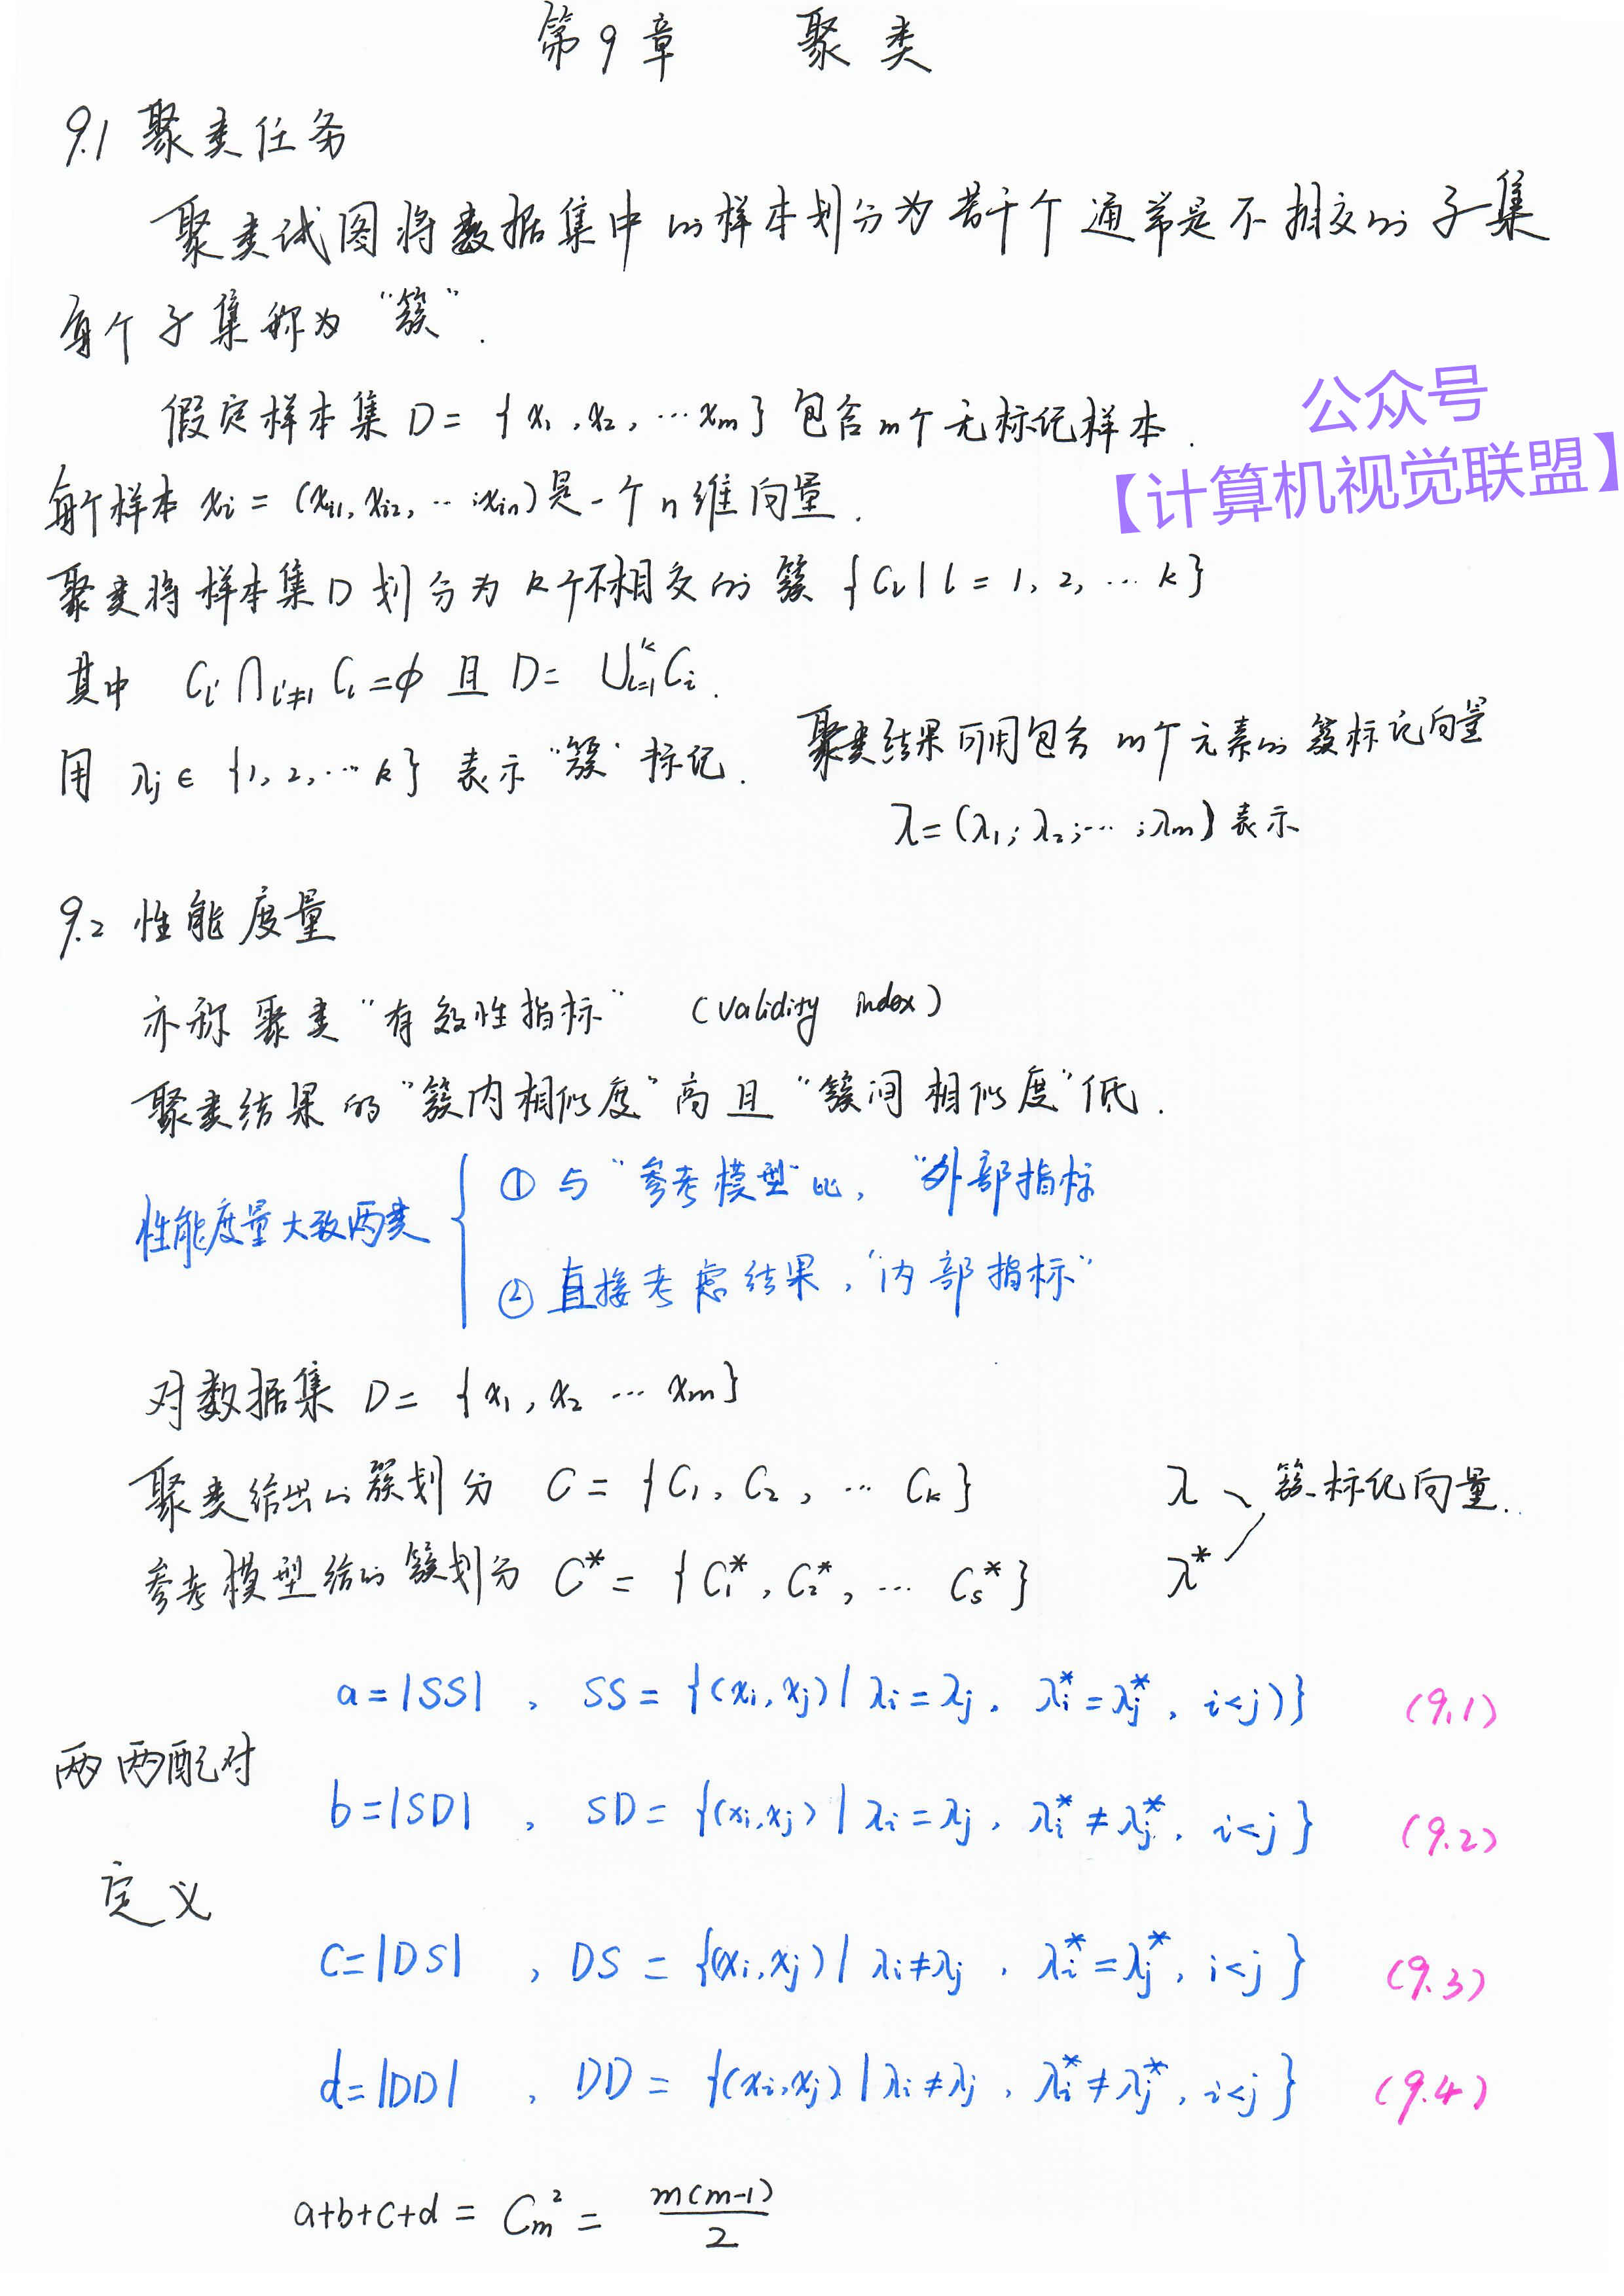 第9章 聚类
9.1 聚类任务
聚类试图将数据集中的样本划分为若干个通常是不相交的子集
每个子集称为“簇”.
假定样本集 D = {x₁, x₂, … xₘ} 包含m个无标记样本.
公众号
每个样本 xᵢ = (xᵢ₁, xᵢ₂, … ; xᵢₙ) 是一个n维向量.
【计算机视觉联盟】
聚类将样本集D划分为k个不相交的簇 {Cₗ | l = 1, 2, … k}
其中 Cₗ' ⋂ₗ'≠ₗ Cₗ = ϕ 且 D = ⋃ₗ₌₁ᵏ Cᵢ.
用 λⱼ ∈ {1, 2, … k} 表示“簇”标记.
聚类结果可用包含m个元素的簇标记向量
λ = (λ₁; λ₂; … ; λₘ) 表示
9.2 性能度量
亦称聚类“有效性指标” (validity index)
聚类结果的“簇内相似度”高且“簇间相似度”低.
性能度量大致两类
① 与“参考模型”比, “外部指标
② 直接考虑结果, “内部指标”
对数据集 D = {x₁, x₂ … xₘ}
聚类给出的簇划分 C = {C₁, C₂, … Cₖ} λ 簇标记向量.
参考模型给的簇划分 C* = {C₁*, C₂*, … Cₛ*} λ*
a = |SS| , SS = {(xᵢ, xⱼ) | λᵢ = λⱼ, λᵢ* = λⱼ*, i<j)} (9.1)
两两配对
b = |SD| , SD = {(xᵢ, xⱼ) | λᵢ = λⱼ, λᵢ* ≠ λⱼ*, i<j} (9.2)
定义
c = |DS| , DS = {(xᵢ, xⱼ) | λᵢ ≠ λⱼ, λᵢ* = λⱼ*, i<j} (9.3)
d = |DD| , DD = {(xᵢ, xⱼ) | λᵢ ≠ λⱼ, λᵢ* ≠ λⱼ*, i<j} (9.4)
a+b+c+d = Cₘ² = m(m-1)/2